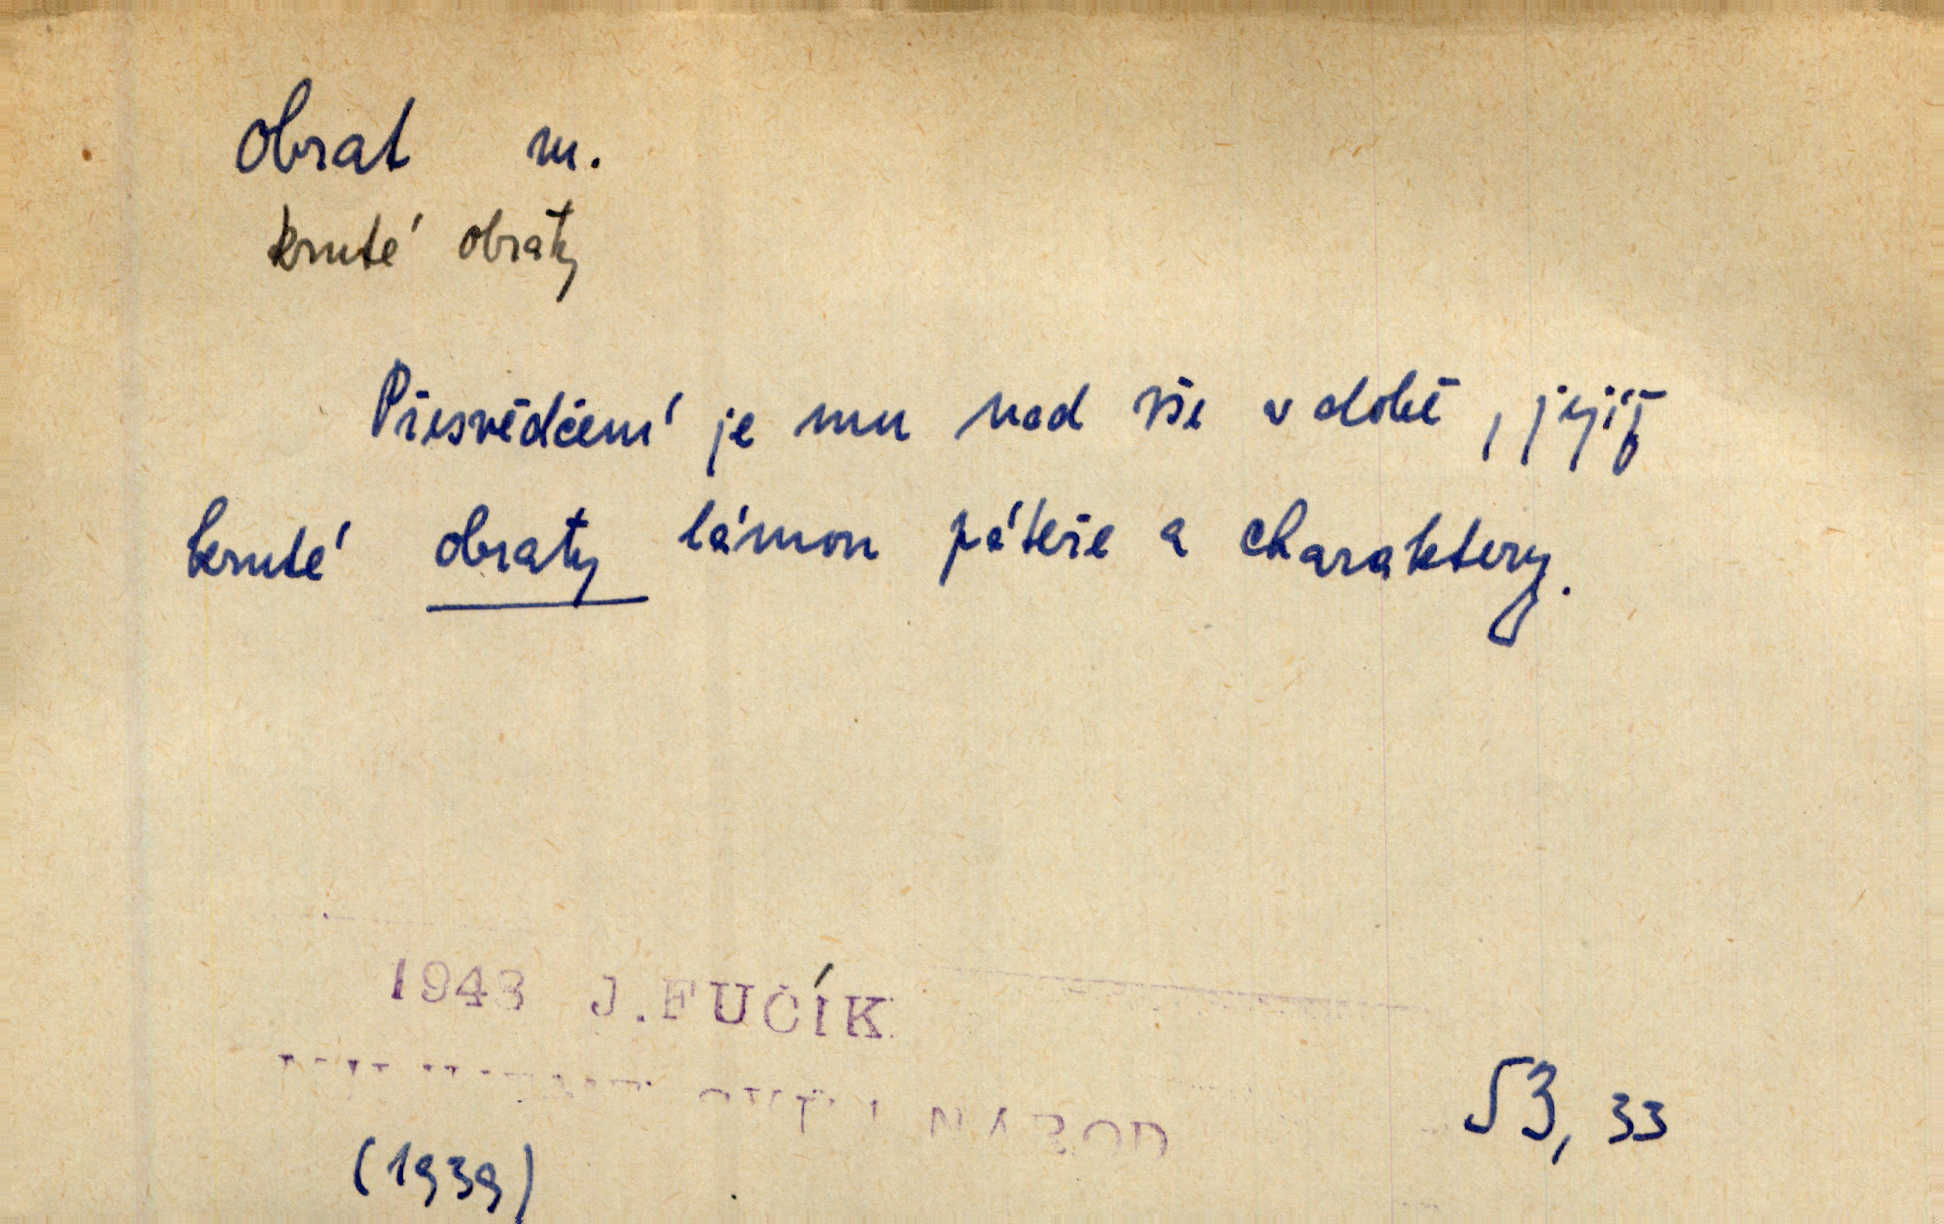 obrat m.
kruté obraty
Přesvědčení je mu nad vše v době, jejíž
kruté obraty lámou páteře a charaktery.
1943 J.FUČÍK
NÁROD
53, 33
(1939)